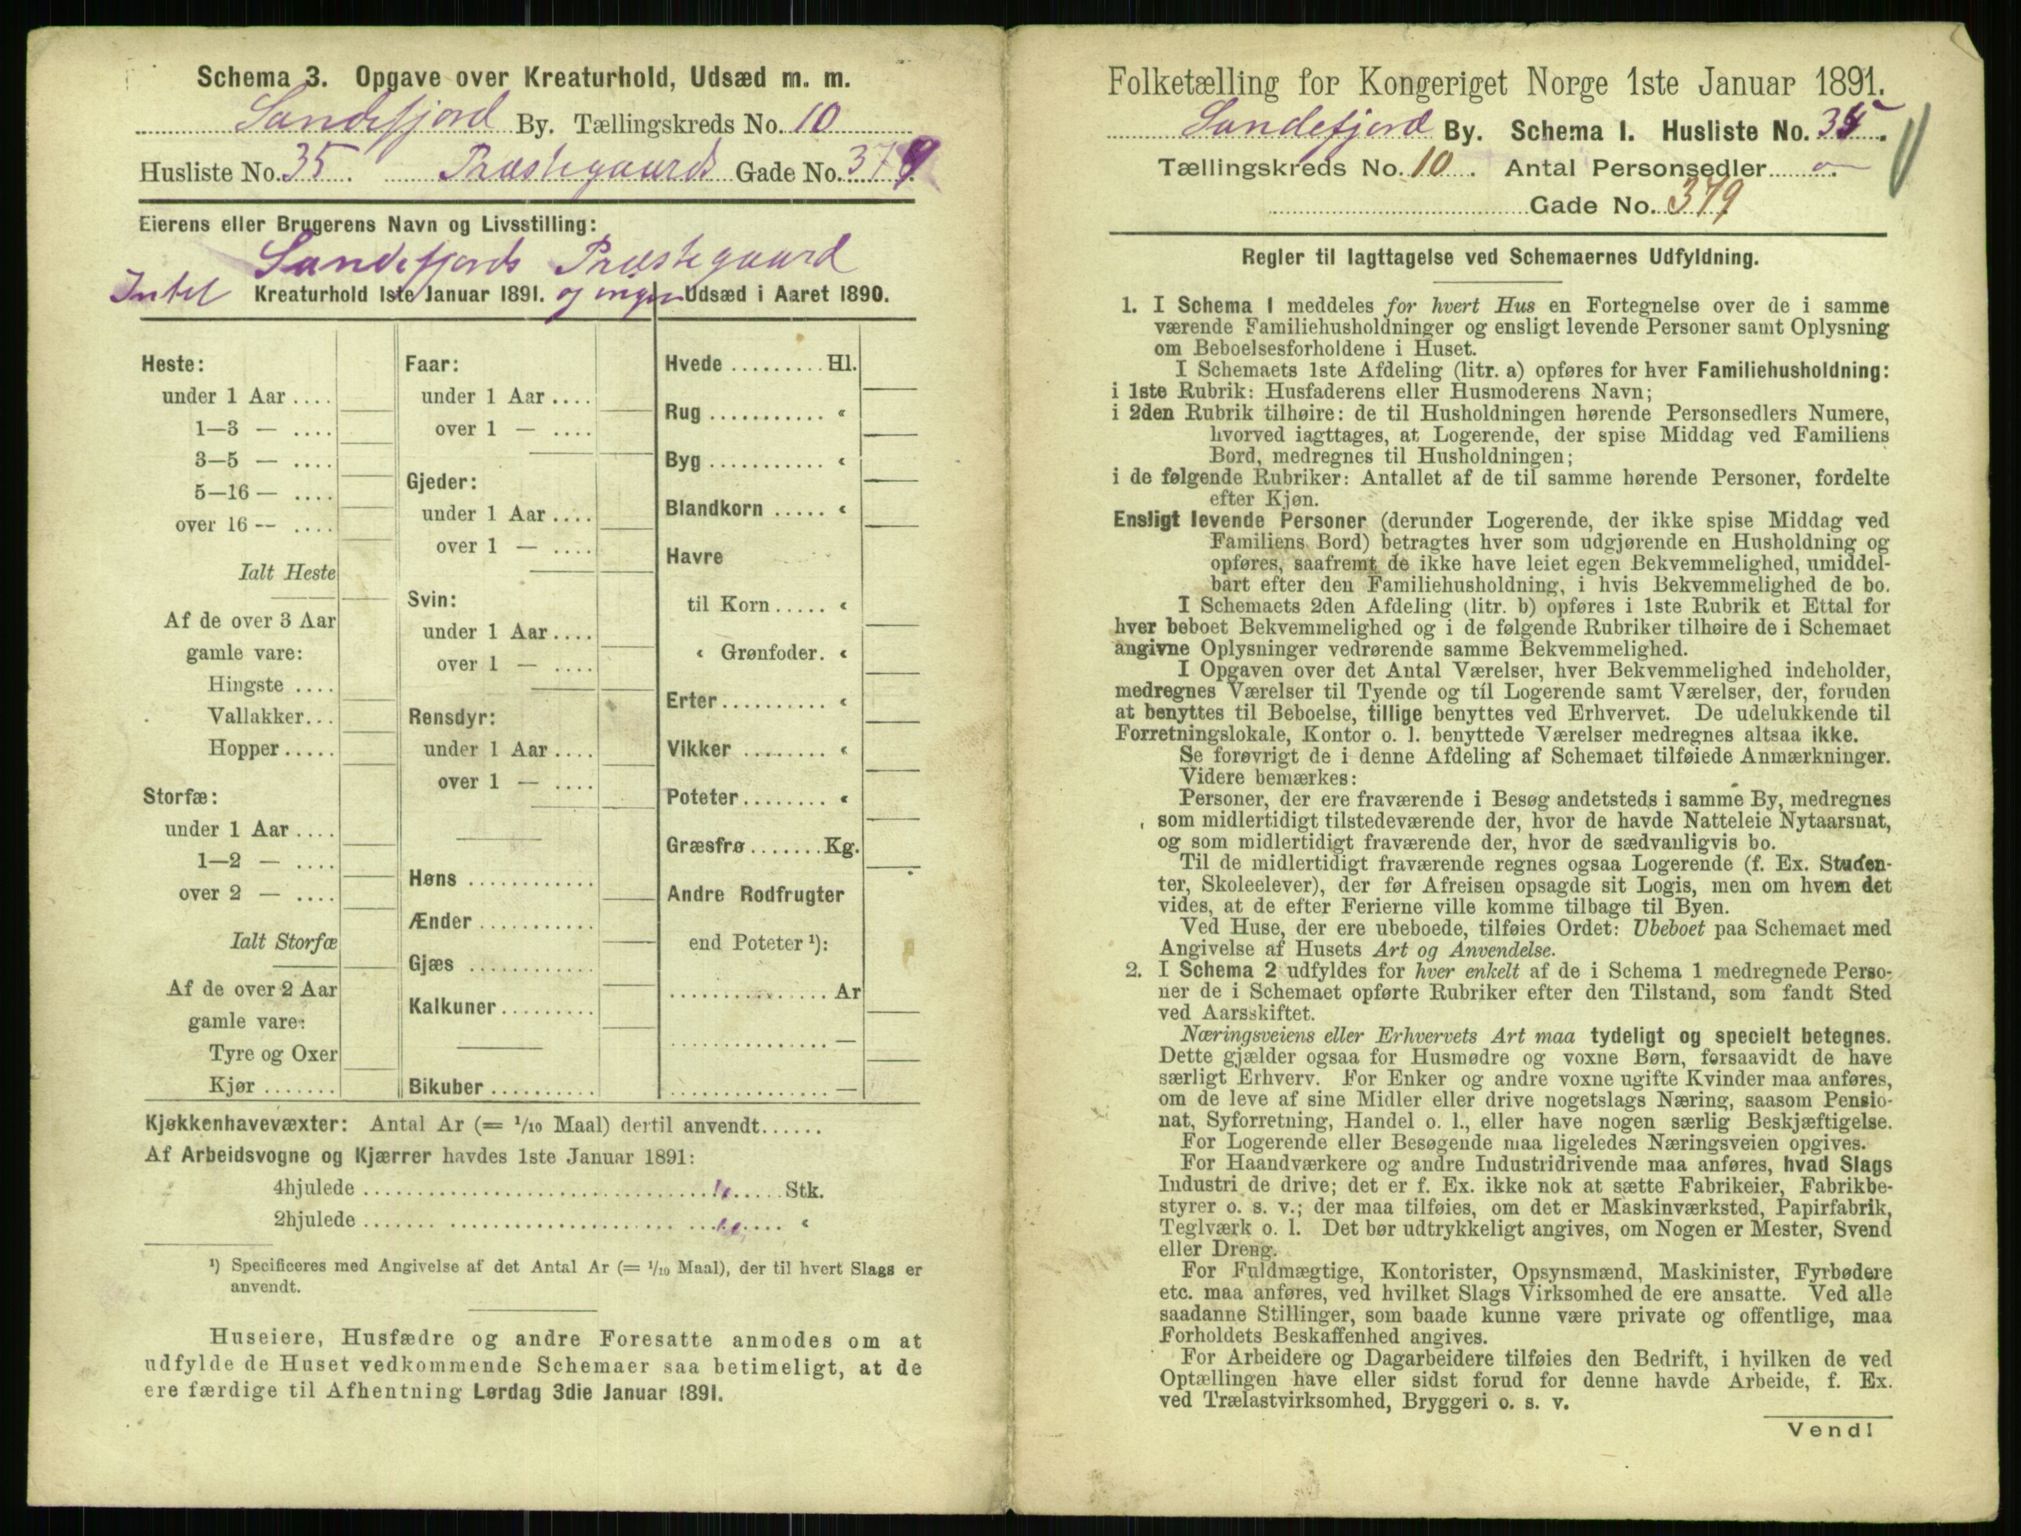 Schema 3. Opgave over Kreaturhold, Udsæd m. m.
Sandefjord By. Tællingskreds No. 10
Husliste No. 35. Præstegaards Gade No. 379
Eierens eller Brugerens Navn og Livsstilling:
Sandefjords Præstegaard
Intet Kreaturhold 1ste Januar 1891. og ingen Udsæd i Aaret 1890.
Heste:
under 1 Aar ....
1—3 — ....
3—5 — ....
5—16 — ....
over 16 -- ....
Ialt Heste
Af de over 3 Aar
gamle vare:
Hingste ....
Vallakker...
Hopper.....
Storfæ:
under 1 Aar ....
1—2 — ....
over 2 — ....
Ialt Storfæ
Af de over 2 Aar
gamle vare:
Tyre og Oxer
Kjør .......
Faar:
under 1 Aar ....
over 1 — ....
Gjeder:
under 1 Aar ....
over 1 — ....
Svin:
under 1 Aar....
over 1 — ....
Rensdyr:
under 1 Aar ....
over 1 — ....
Høns ............
Ænder ...........
Gjæs ............
Kalkuner .........
Bikuber ..........
Hvede ......... Hl.
Rug ........... «
Byg ........... «
Blandkorn ..... «
Havre
til Korn ..... «
« Grønfoder. «
Erter.......... «
Vikker ........ «
Poteter........ «
Græsfrø .......Kg.
Andre Rodfrugter
end Poteter ¹):
............... Ar
............... —
............... —
Kjøkkenhavevæxter: Antal Ar (= 1/10 Maal) dertil anvendt......
Af Arbeidsvogne og Kjærrer havdes 1ste Januar 1891:
4hjulede .......................... " ..... Stk.
2hjulede .......................... " ..... «
¹) Specificeres med Angivelse af det Antal Ar (= 1/10 Maal), der til hvert Slags er
anvendt.
Huseiere, Husfædre og andre Foresatte anmodes om at
udfylde de Huset vedkommende Schemaer saa betimeligt, at de
ere færdige til Afhentning Lørdag 3die Januar 1891.
Folketælling for Kongeriget Norge 1ste Januar 1891.
Sandefjord By. Schema I. Husliste No. 35.
Tællingskreds No. 10. Antal Personsedler o
Gade No. 379
Regler til Iagttagelse ved Schemaernes Udfyldning.
1. I Schema 1 meddeles for hvert Hus en Fortegnelse over de i samme
værende Familiehusholdninger og ensligt levende Personer samt Oplysning
om Beboelsesforholdene i Huset.
I Schemaets 1ste Afdeling (litr. a) opføres for hver Familiehusholdning:
i 1ste Rubrik: Husfaderens eller Husmoderens Navn;
i 2den Rubrik tilhøire: de til Husholdningen hørende Personsedlers Numere,
hvorved iagttages, at Logerende, der spise Middag ved Familiens
Bord, medregnes til Husholdningen;
i de følgende Rubriker: Antallet af de til samme hørende Personer, fordelte
efter Kjøn.
Ensligt levende Personer (derunder Logerende, der ikke spise Middag ved
Familiens Bord) betragtes hver som udgjørende en Husholdning og
opføres, saafremt de ikke have leiet egen Bekvemmelighed, umiddel-
bart efter den Familiehusholdning, i hvis Bekvemmelighed de bo.
I Schemaets 2den Afdeling (litr. b) opføres i 1ste Rubrik et Ettal for
hver beboet Bekvemmelighed og i de følgende Rubriker tilhøire de i Schemaet
angivne Oplysninger vedrørende samme Bekvemmelighed.
I Opgaven over det Antal Værelser, hver Bekvemmelighed indeholder,
medregnes Værelser til Tyende og til Logerende samt Værelser, der, foruden
at benyttes til Beboelse, tillige benyttes ved Erhvervet. De udelukkende til
Forretningslokale, Kontor o. l. benyttede Værelser medregnes altsaa ikke.
Se forøvrigt de i denne Afdeling af Schemaet tilføiede Anmærkninger.
Videre bemærkes:
Personer, der ere fraværende i Besøg andetsteds i samme By, medregnes
som midlertidigt tilstedeværende der, hvor de havde Natteleie Nytaarsnat,
og som midlertidigt fraværende der, hvor de sædvanligvis bo.
Til de midlertidigt fraværende regnes ogsaa Logerende (f. Ex. Studen-
ter, Skoleelever), der før Afreisen opsagde sit Logis, men om hvem det
vides, at de efter Ferierne ville komme tilbage til Byen.
Ved Huse, der ere ubeboede, tilføies Ordet: Ubeboet paa Schemaet med
Angivelse af Husets Art og Anvendelse.
2. I Schema 2 udfyldes for hver enkelt af de i Schema 1 medregnede Perso-
ner de i Schemaet opførte Rubriker efter den Tilstand, som fandt Sted
ved Aarsskiftet.
Næringsveiens eller Erhvervets Art maa tydeligt og specielt betegnes.
Dette gjælder ogsaa for Husmødre og voxne Børn, forsaavidt de have
særligt Erhverv. For Enker og andre voxne ugifte Kvinder maa anføres,
om de leve af sine Midler eller drive nogetslags Næring, saasom Pensio-
nat, Syforretning, Handel o. l., eller have nogen særlig Beskjæftigelse.
For Logerende eller Besøgende maa ligeledes Næringsveien opgives.
For Haandværkere og andre Industridrivende maa anføres, hvad Slags
Industri de drive; det er f. Ex. ikke nok at sætte Fabrikeier, Fabrikbe-
styrer o. s. v.; der maa tilføies, om det er Maskinværksted, Papirfabrik,
Teglværk o. l. Det bør udtrykkeligt angives, om Nogen er Mester, Svend
eller Dreng.
For Fuldmægtige, Kontorister, Opsynsmænd, Maskinister, Fyrbødere
etc. maa anføres, ved hvilket Slags Virksomhed de ere ansatte. Ved alle
saadanne Stillinger, som baade kunne være private og offentlige, maa
Forholdets Beskaffenhed angives.
For Arbeidere og Dagarbeidere tilføies den Bedrift, i hvilken de ved
Optællingen have eller sidst forud for denne havde Arbeide, f. Ex.
ved Trælastvirksomhed, Bryggeri o. s. v.
Vend!